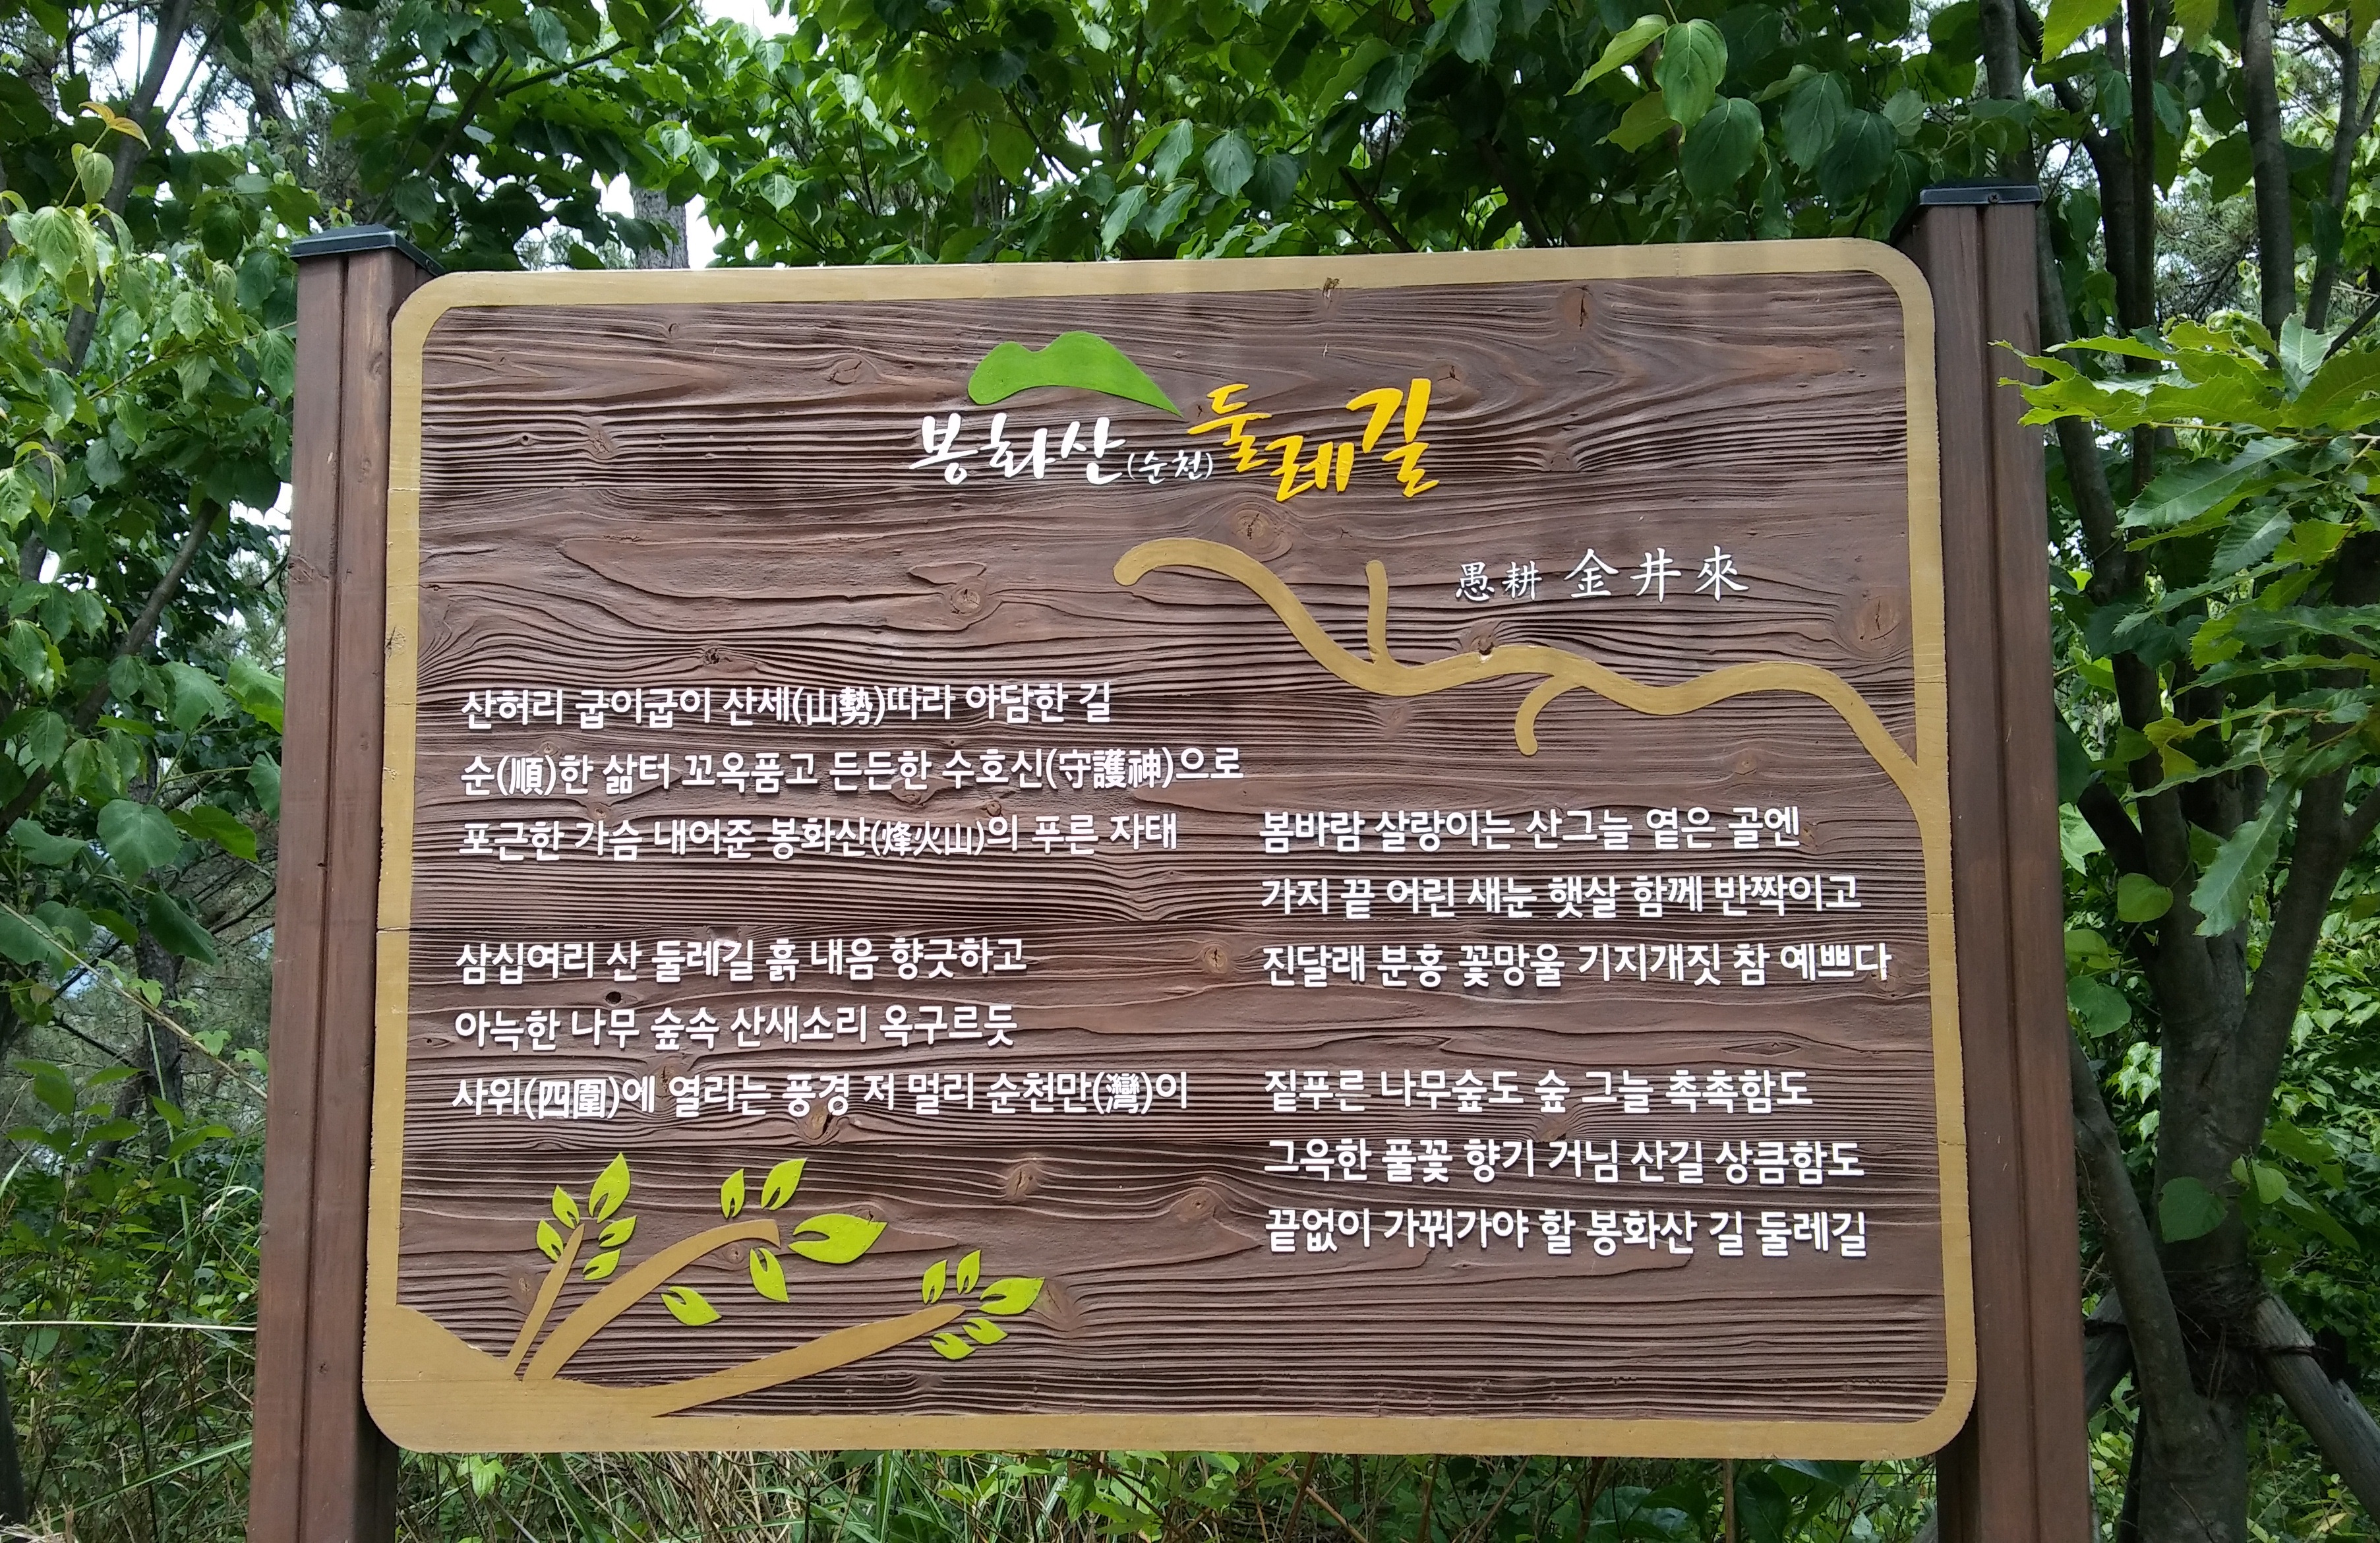 봉화산(순천)둘레길
愚耕 金井來
산허리 굽이굽이 산세(山勢)따라 아담한 길
순(順)한 삶터 꼬옥품고 든든한 수호신(守護神)으로
포근한 가슴 내어준 봉화산(烽火山)의 푸른 자태
삼십여리 산 둘레길 흙 내음 향긋하고
아늑한 나무 숲속 산새소리 옥구르듯
사위(四圍)에 열리는 풍경 저 멀리 순천만(灣)이
봄바람 살랑이는 산그늘 옅은 골엔
가지 끝 어린 새눈 햇살 함께 반짝이고
진달래 분홍 꽃망울 기지개짓 참 예쁘다
짙푸른 나무숲도 숲 그늘 촉촉함도
그윽한 풀꽃 향기 거님 산길 상큼함도
끝없이 가꿔가야 할 봉화산 길 둘레길